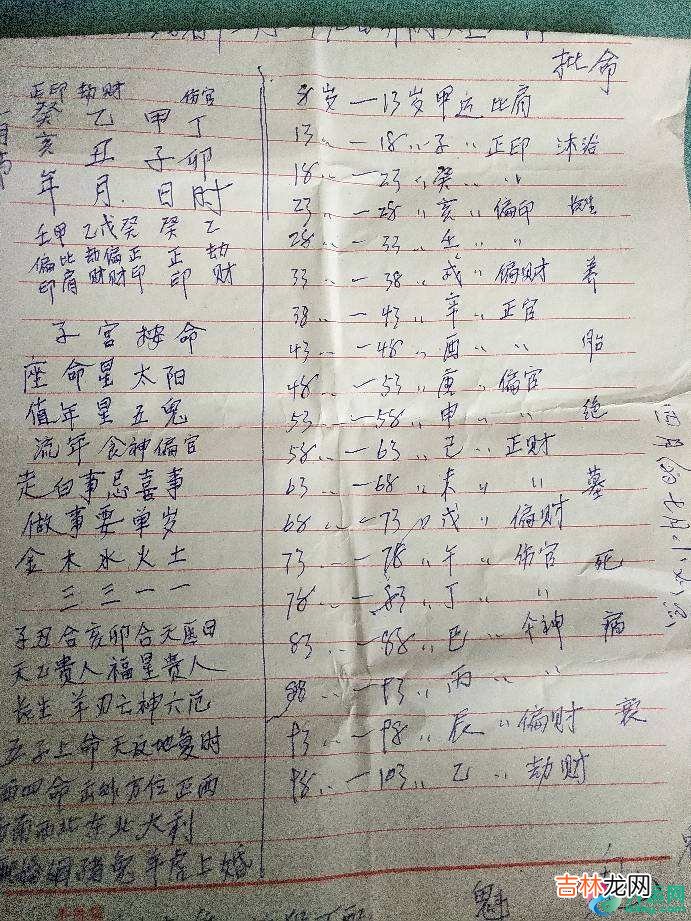 批命
正印 劫财 伤官
癸 乙 甲 丁
亥 丑 子 卯
年 月 日 时
壬甲 乙戊癸 癸 乙
偏比 劫偏正 正 劫
印肩 财财印 印 财
子宫按命
座命星太阳
值年星五鬼
流年食神偏官
走白事忌喜事
做事要单岁
金木水火土
三三一一
子丑合亥卯合天医日
天乙贵人福星贵人
长生羊刃亡神六厄
五子上命天反地复时
西四命 方位正西
南西北东北大利
婚猪兔羊虎上婚
8岁一13岁甲运比肩
13〃一18〃子〃正印 沐浴
18一23〃癸〃〃
23〃一28〃亥〃偏印 长生
28〃一33〃壬〃〃
33〃一38〃戌〃偏财 养
38〃一43〃辛〃正官
43〃一48〃酉〃〃 胎
48〃一53〃庚〃偏官
53〃一58〃申〃〃 绝
58〃一63〃己〃正财
63〃一68〃未〃〃 墓
68〃一73〃戊〃偏财
73〃一78〃午〃伤官 死
78〃一83〃丁〃〃
83〃一88〃巳〃伞神 病
88〃一93〃丙〃〃
93〃一98〃辰〃偏财 衰
98〃一103〃乙〃劫财
魁
吉林龙网